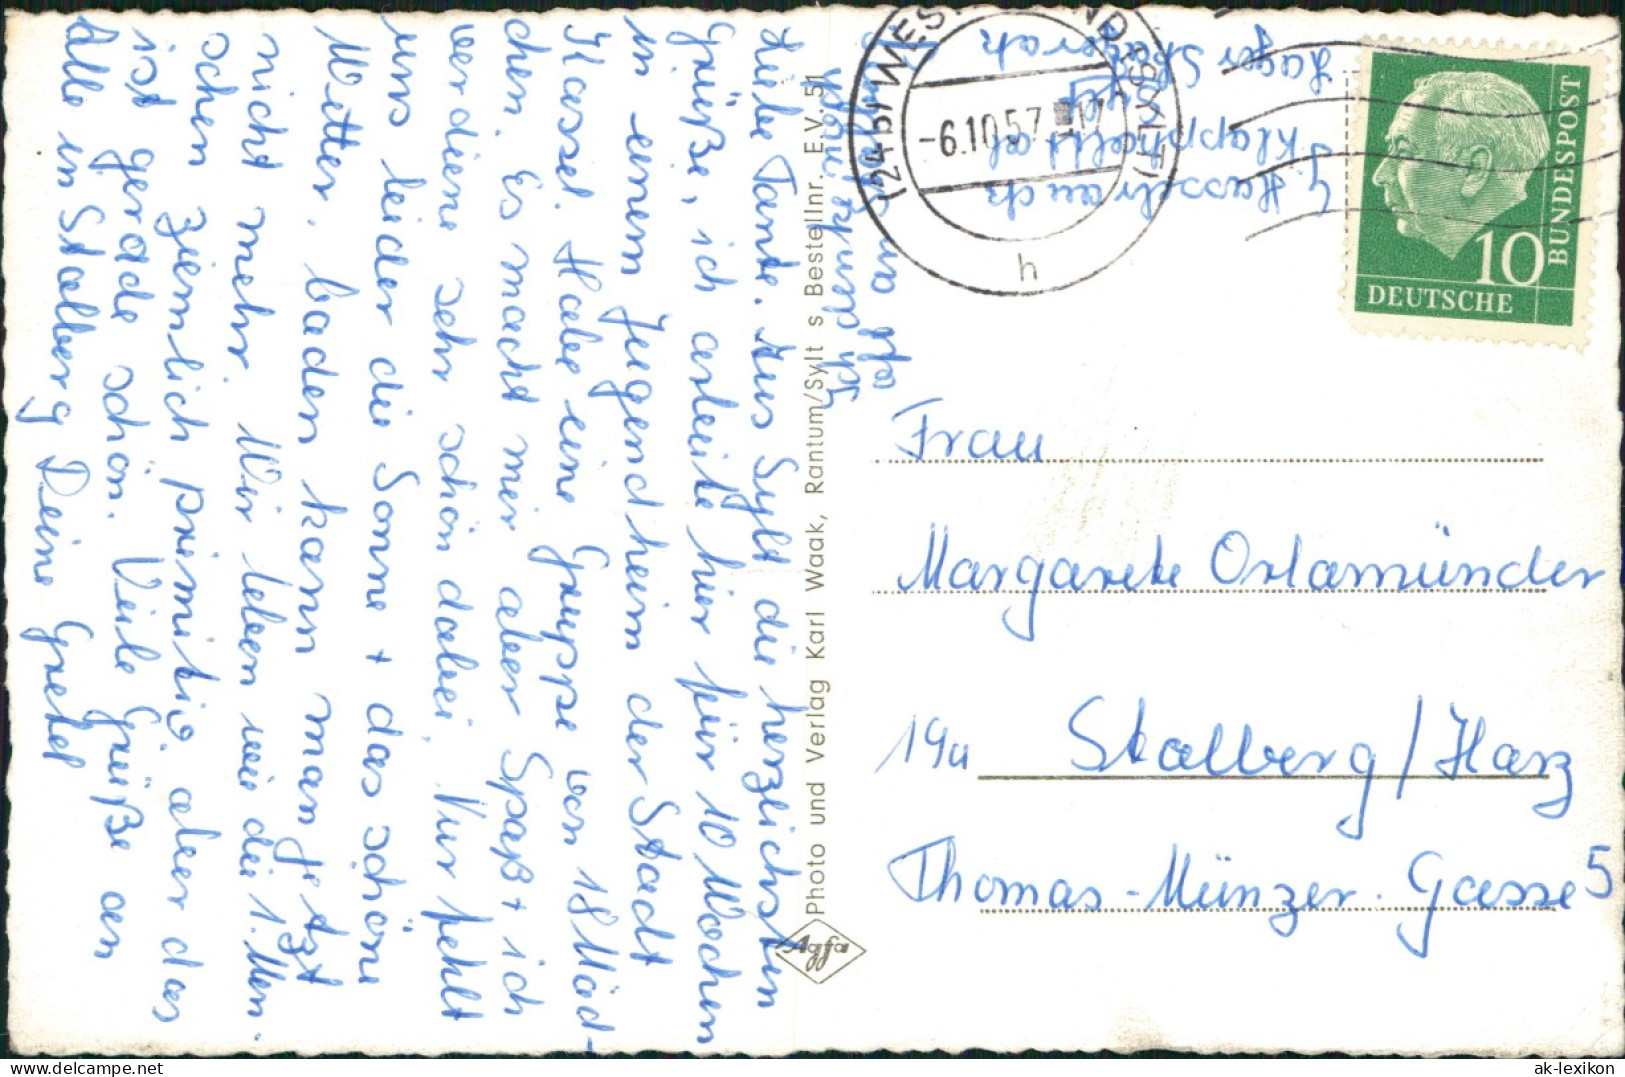 Liebe Tante. Aus Sylt die herzlichsten
Grüße, ich arbeite hier für 10 Wochen
in einem Jugendheim der Stadt
Kassel. Habe eine Gruppe von 18 Mäd-
chen. Es macht mir aber Spaß + ich
verdiene sehr schön dabei. Nur fehlt
uns leider die Sonne + das schöne
Wetter, baden kann man jetzt
nicht mehr. Wir leben wie die 1. Men-
schen ziemlich primitiv, aber das
ist gerade schön. Viele Grüße an
Alle in Stolberg Deine Gretel
Ich denke noch
oft an
G. Hasselrauch
Klappholttal
Sylt
Lager Skagerak
(24b) WESTERLAND (SYLT)
-6.10.57.-17
h
10
DEUTSCHE
BUNDESPOST
Photo und Verlag Karl Waak, Rantum/Sylt s Bestellnr. E.V. 51
Agfa
Frau
Margarete Orlamünder
19a Stolberg/Harz
Thomas-Münzer-Gasse 5
hip.postcard
ak-lexikon